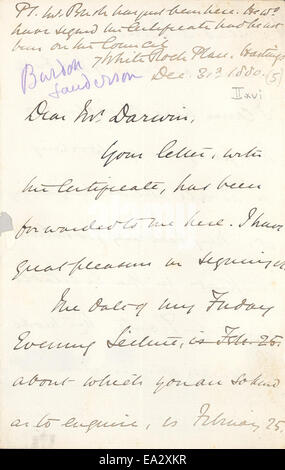 P.S. Mr. Busk has just been here. He wd.
have signed the Certificate had he not
been on the Council
7 White Rock Place, Hastings
Burdon
Sanderson
Dec 31st 1880. (5)
II xvi
Dear Mr. Darwin,
Your letter, with
the Certificate, has been
forwarded to me here. I have
great pleasure in signing it.
The date of my Friday
Evening Lecture, is Feb. 25.
about which you are so kind
as to enquire, is February 25.
alamy stock photo
EA2XKR